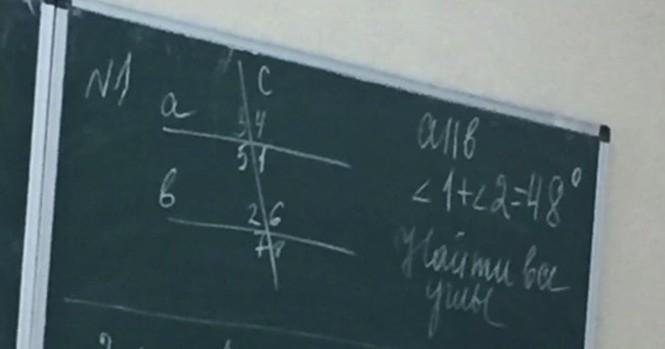 N1
C
a
3 4
5 1
в
2 6
7 8
a||в
<1+<2=48°
Найти все
углы